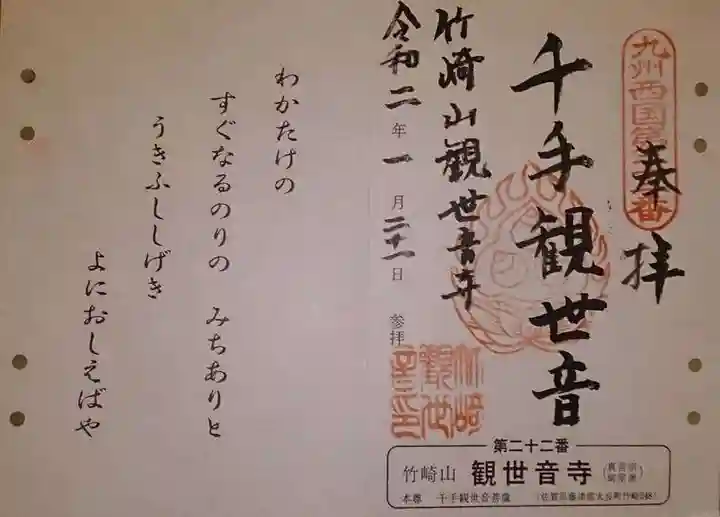 九州西国第
番
奉拝
千手観世音
竹崎山観世音寺
令和二年一月二十一日
参拝
竹崎
観世
音寺印
第二十二番
竹崎山 観世音寺
本尊 千手観世音菩薩
わかたけの
すぐなるのりの みちありと
うきふししげき
よにおしえばや